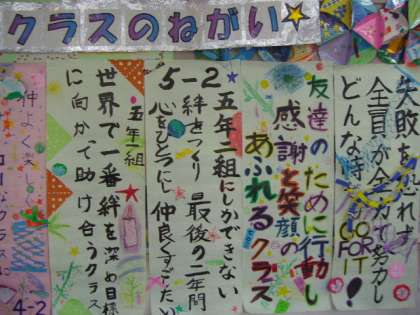 クラスのねがい
失敗をおそれず
全員が全力で努力し
どんな時でも
GO
FOR
IT!
友達のために行動し
感謝と笑顔の
あふれるクラス
5-2
五年二組にしかできない
絆をつくり 最後の二年間
心をひとつにし 仲良くすごしたい
五年一組
世界で一番絆を深め目標
に向かって助け合うクラス
仲よく
クラスに
4-2